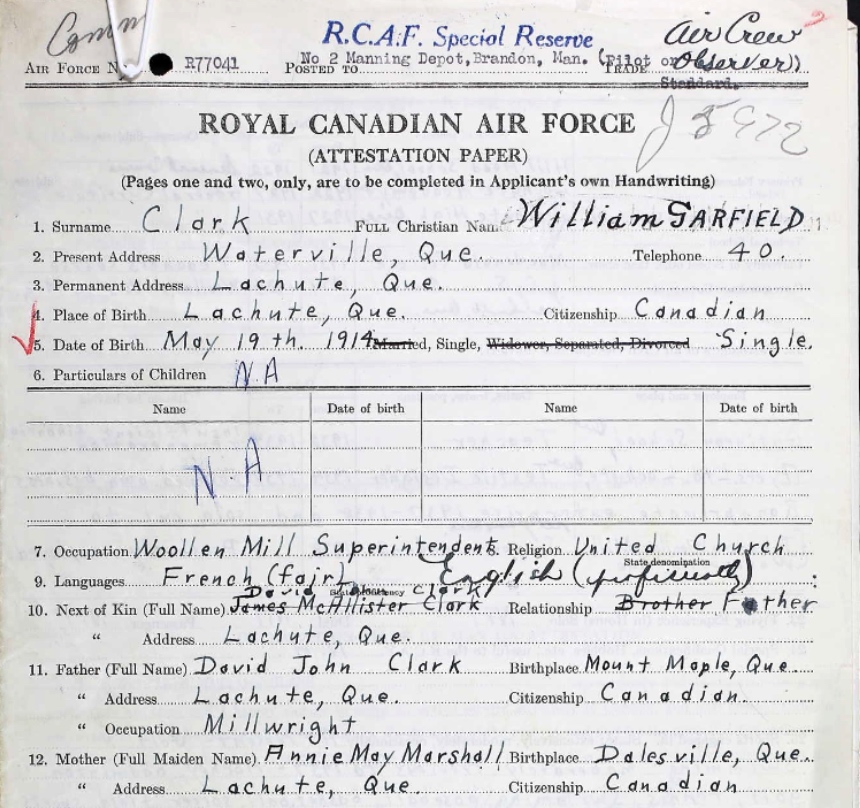 Comm R.C.A.F. Special Reserve Air Crew
AIR FORCE No. R77041 POSTED TO No 2 Manning Depot, Brandon, Man. TRADE (Pilot or Observer)
Standard.
ROYAL CANADIAN AIR FORCE J5972
(ATTESTATION PAPER)
(Pages one and two, only, are to be completed in Applicant's own Handwriting)
1. Surname Clark FULL Christian Name William GARFIELD
2. Present Address Waterville, Que. Telephone 40.
3. Permanent Address Lachute, Que.
4. Place of Birth Lachute, Que. Citizenship Canadian
5. Date of Birth May 19th. 1914 Married, Single, Widower, Separated, Divorced Single.
6. Particulars of Children N.A
Name Date of birth Name Date of birth
N A
7. Occupation Woollen Mill Superintendent 8. Religion United Church
State denomination
9. Languages French (fair) English (proficiently)
David Clark
10. Next of Kin (Full Name) James McAllister Clark Relationship Brother Father
" Address Lachute, Que.
11. Father (Full Name) David John Clark Birthplace Mount Maple, Que.
" Address Lachute, Que. Citizenship Canadian.
" Occupation Millwright
12. Mother (Full Maiden Name) Annie May Marshall Birthplace Dalesville, Que.
" Address Lachute, Que. Citizenship Canadian